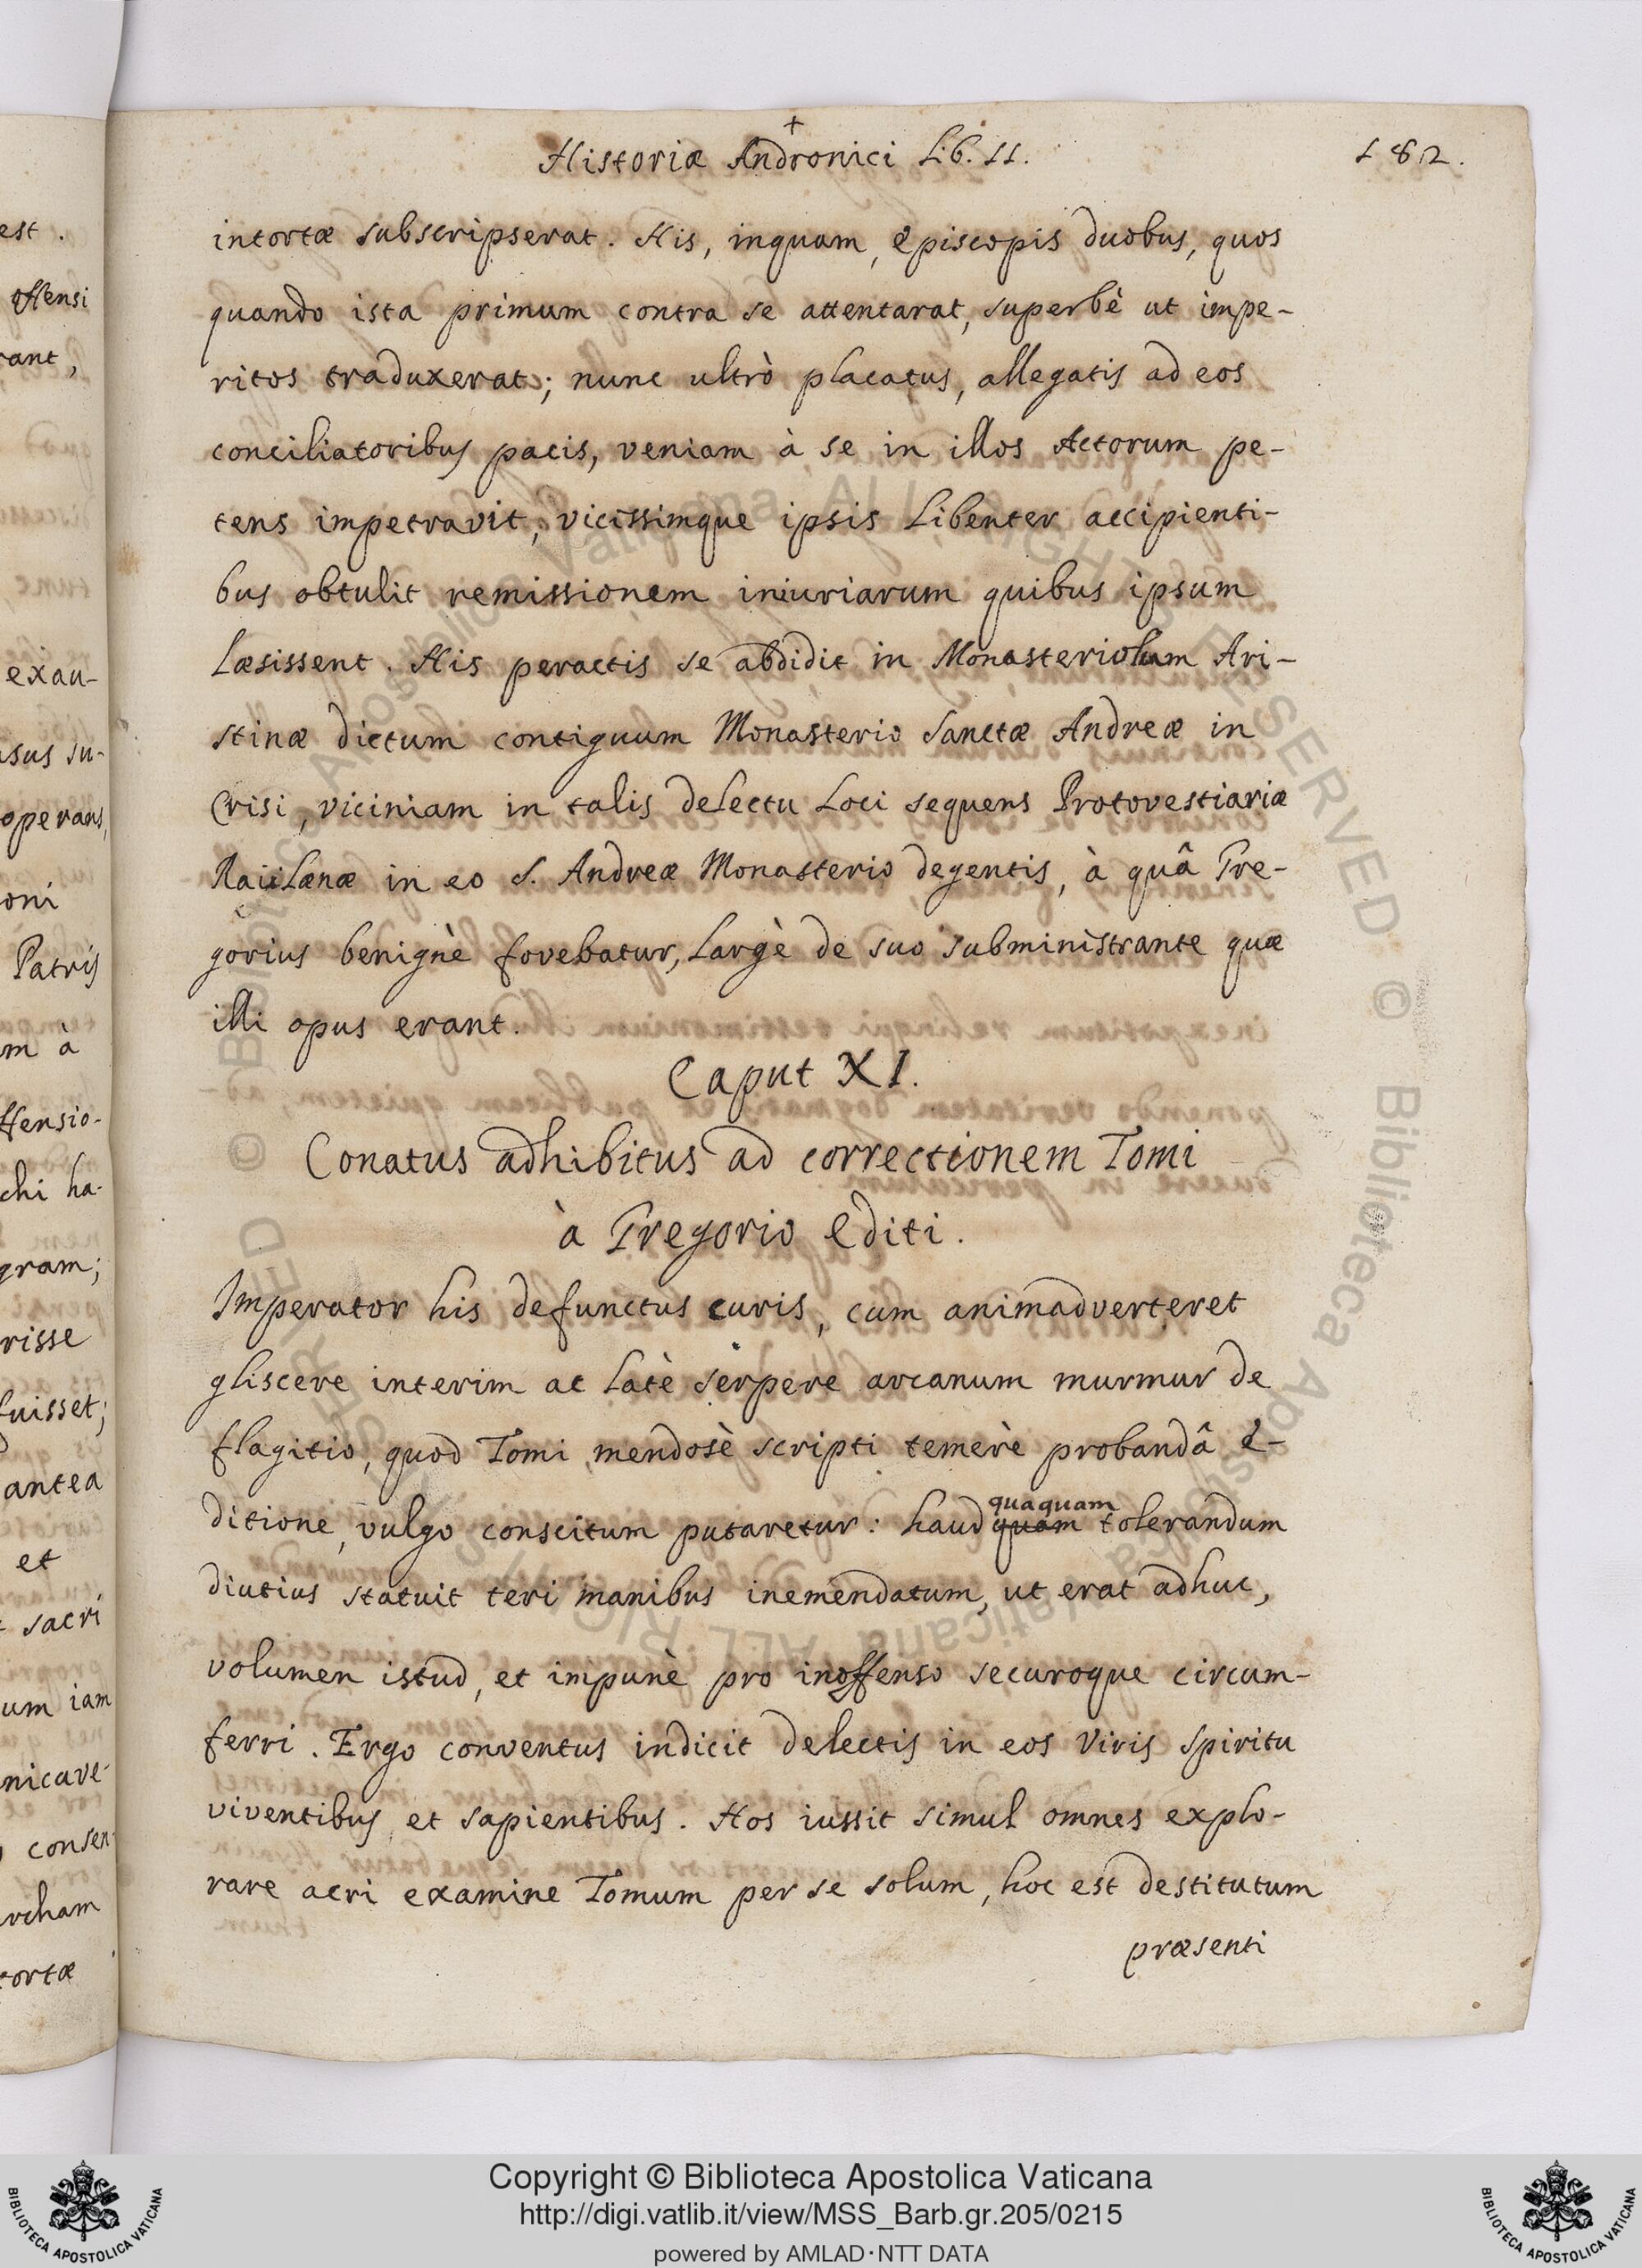 +
Historiæ Andronici Lib. II. 182.
intortæ subscripserat. His, inquam, Episcopis duobus, quos
quando ista primum contra se attentarat, superbè ut impe-
ritos traduxerat; nunc ultrò placatus, allegatis ad eos
conciliatoribus pacis, veniam à se in illos Actorum pe-
tens impetravit, vicissimque ipsis Libenter accipienti-
bus obtulit remissionem iniuriarum quibus ipsum
Læsissent. His peractis se abdidit in Monasteriolum Ari-
stinæ dictum contiguum Monasterio Sanctæ Andreæ in
Crisi, viciniam in talis delectu Loci sequens Protovestiariæ
Raülænæ in eo S. Andreæ Monasterio degentis, à quâ Gre-
gorius benignè fovebatur, Largè de suo subministrante quæ
illi opus erant.
Caput XI.
Conatus adhibitus ad correctionem Tomi
à Gregorio Editi.
Imperator his defunctus curis, cum animadverteret
gliscere interim ac Latè serpere arcanum murmur de
flagitio, quod Tomi mendosè scripti temerè probandâ E-
quaquam
ditione, vulgo conscitum putaretur: haud quam tolerandum
diutius statuit teri manibus inemendatum, ut erat adhuc,
volumen istud, et impunè pro inoffenso securoque circum-
ferri. Ergo conventus indicit delectis in eos Viris Spiritu
viventibus et sapientibus. Hos iussit simul omnes explo-
rare acri examine Tomum per se solum, hoc est destitutum
præsenti
est.
offensi
rant,
exau-
operans,
oni
Patris
m à
ffensio-
chi ha-
gram;
risse
fuisset;
antea
et
sacri
um iam
nicave-
consen-
archam
tortæ
© Biblioteca Apostolica Vaticana ALL RIGHTS RESERVED
© Biblioteca Apostolica Vaticana ALL RIGHTS RESERVED
Copyright © Biblioteca Apostolica Vaticana
http://digi.vatlib.it/view/MSS_Barb.gr.205/0215
powered by AMLAD·NTT DATA
BIBLIOTECA APOSTOLICA VATICANA
BIBLIOTECA APOSTOLICA VATICANA